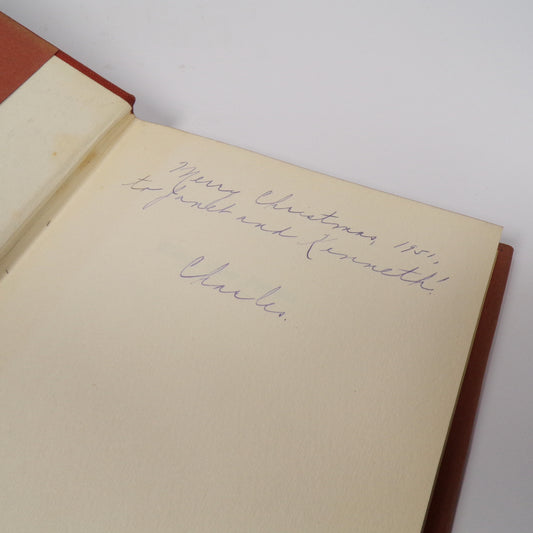 Merry Christmas, 1951,
to Janet and Kenneth!
Charles.